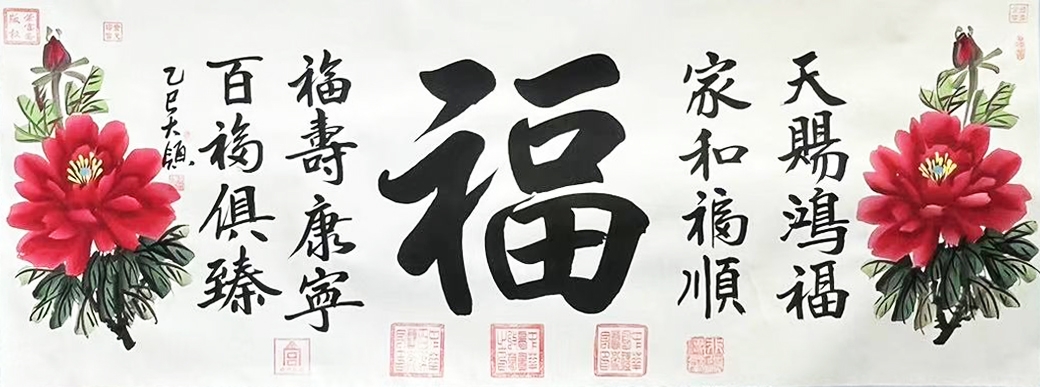 天賜鴻福
家和福順
福
福壽康寧
百福俱臻
乙巳大